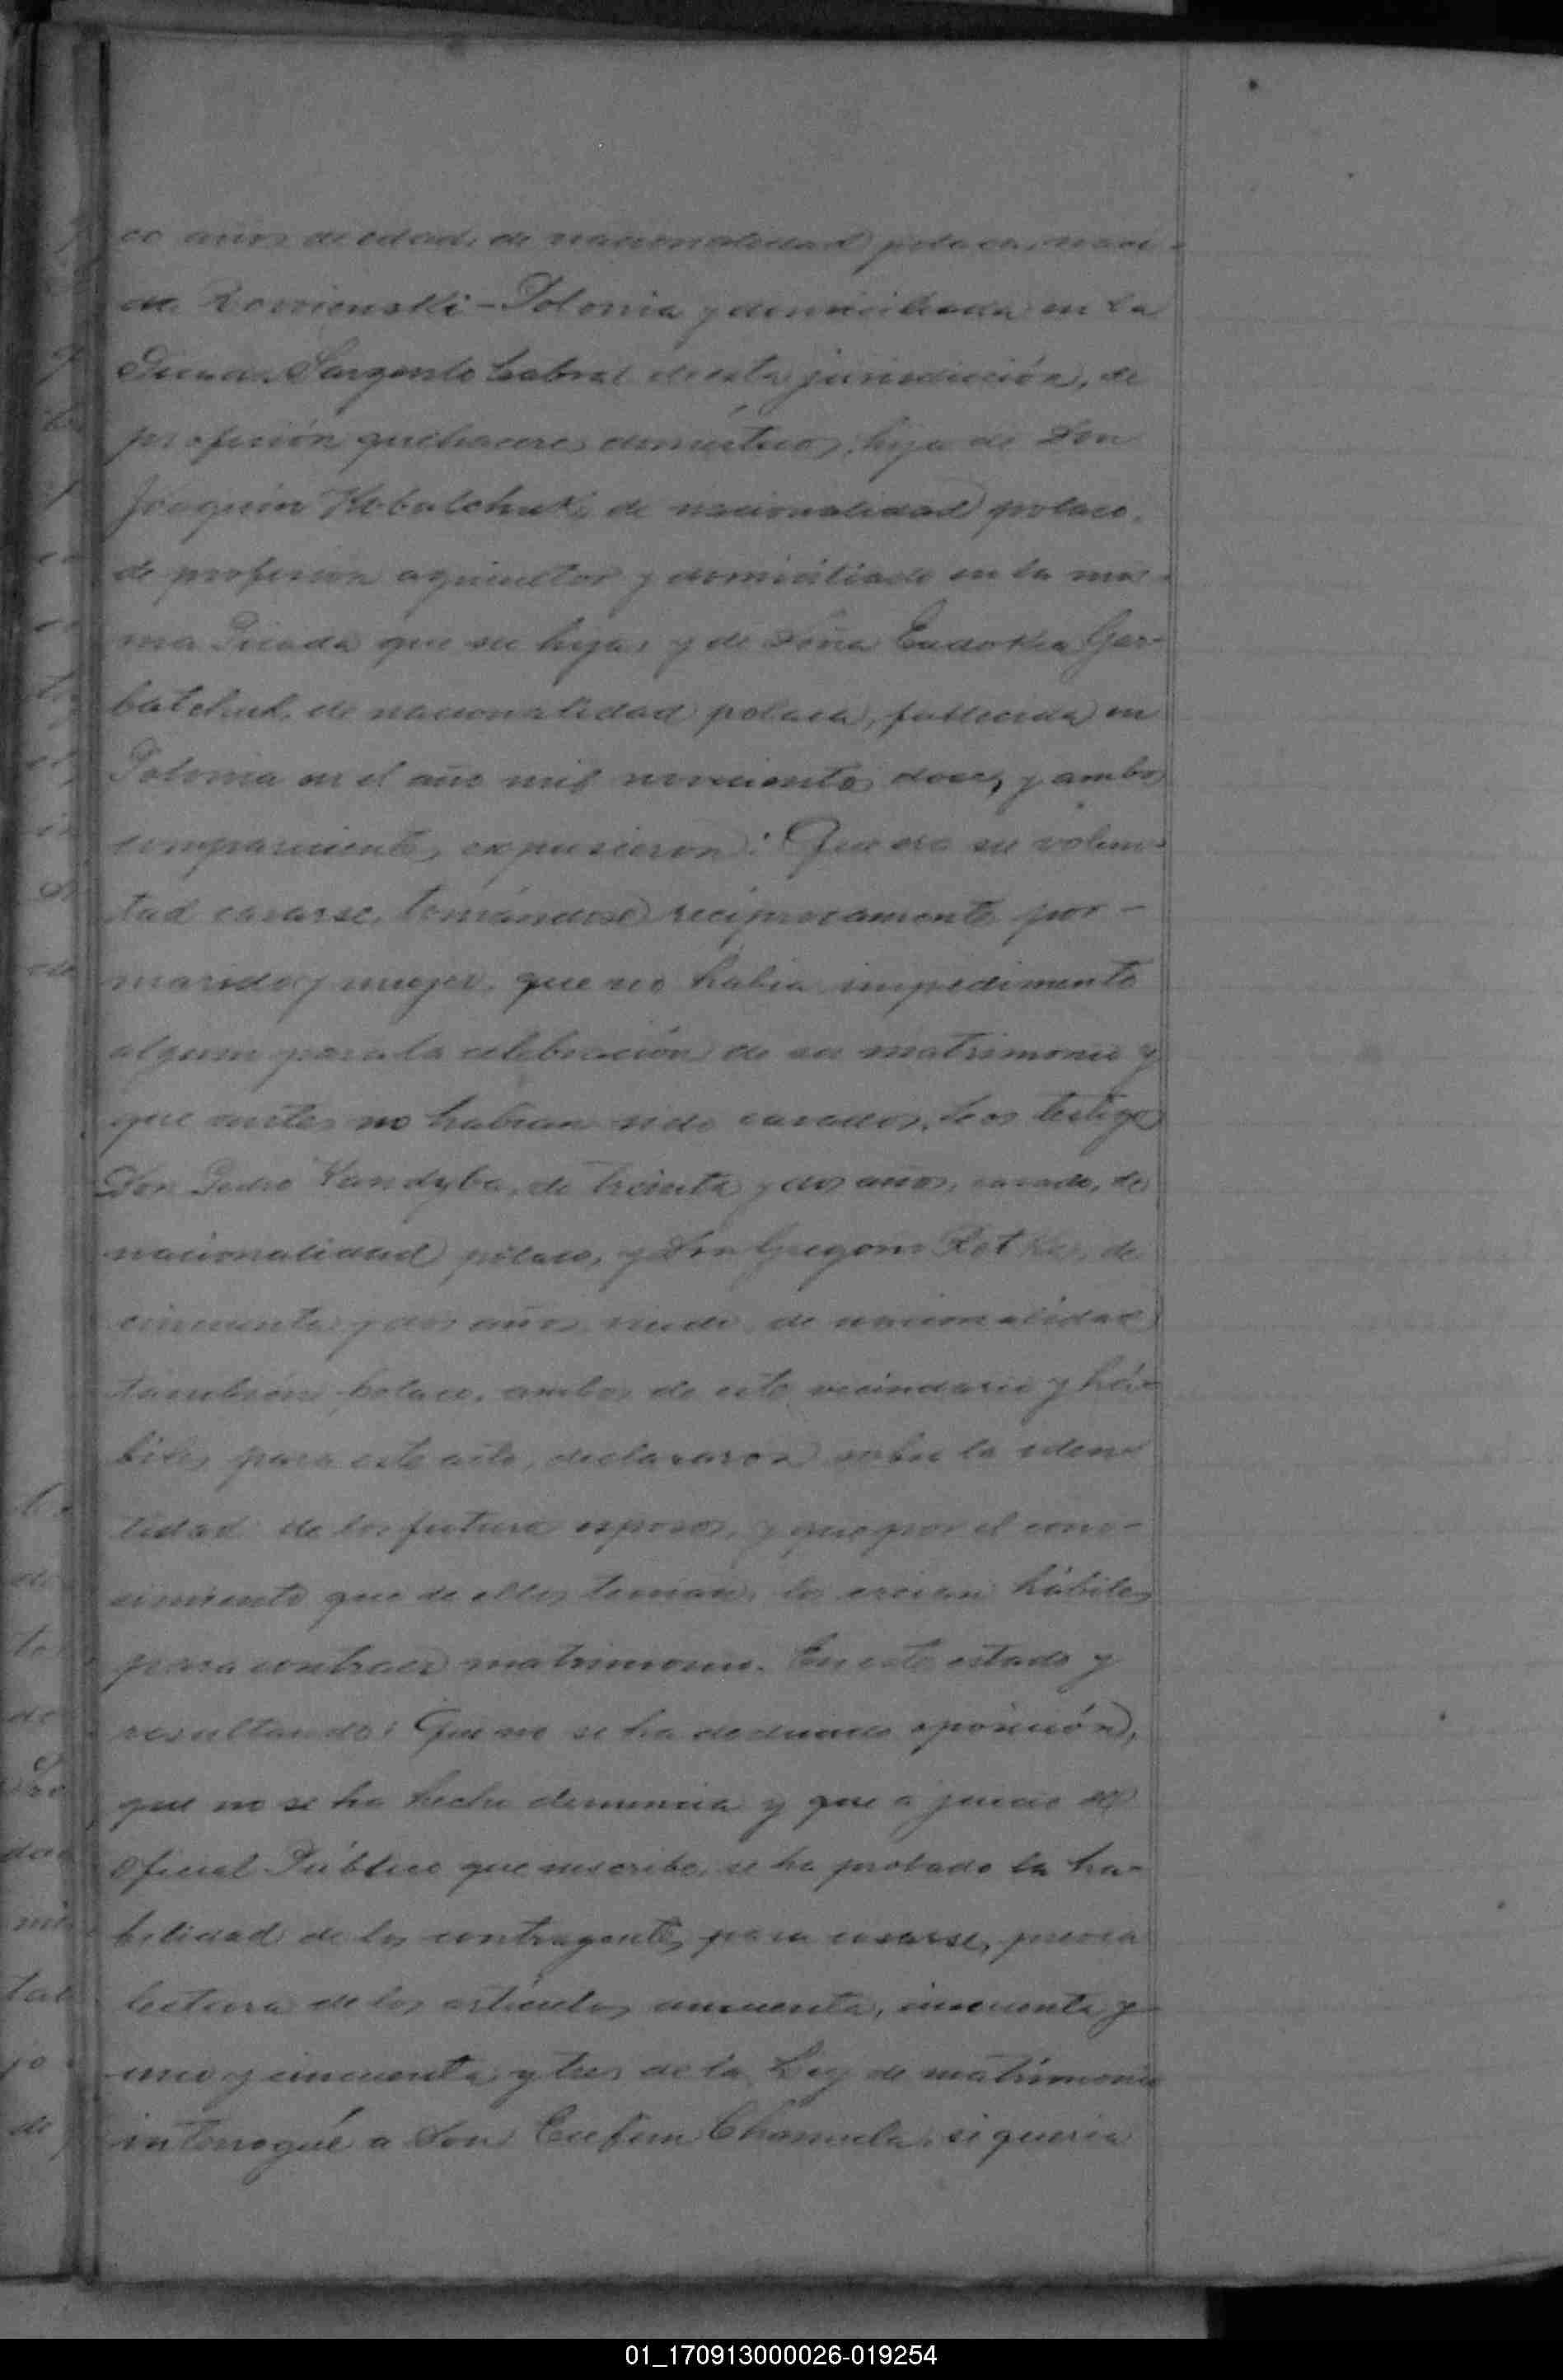 co años de edad, de nacionalidad polaca, naci-
da Rovienski - Polonia y domiciliada en la
Picada Sargento Cabral de esta jurisdicción, de
profesión quehaceres domésticos, hija de Don
Joaquin Kobalchuk, de nacionalidad polaco,
de profesion agricultor y domiciliado en la mis-
ma Picada que su hija, y de Doña Eudokia Gar-
batchuk, de nacionalidad polaca, fallecida en
Polonia en el año mil novecientos doce, y ambos
comparecientes, expusieron: Que era su volun-
tad casarse, tomándose reciprocamente por -
marido y mujer, que no habia impedimento
alguno para la celebración de su matrimonio y
que antes no habian sido casados. Los testigos
Don Pedro Sandyba, de treinta y dos años, casado, de
nacionalidad polaco, y Don Gregorio de
cincuenta y dos años, viudo, de nacionalidad
tambien polaco, ambos de este vecindario y há-
biles para este acto, declararon sobre la iden-
tidad de los futuros esposos, y que por el cono-
cimiento que de ellos tenian, los creian hábiles
para contraer matrimonio. En este estado y
resultando: Que no se ha deducido oposición,
que no se ha hecho denuncia y que a juicio del
Oficial Público que suscribe, se ha probado la ha-
bilidad de los contrayentes para casarse, previa
lectura de los articulos cincuenta, cincuenta y
uno y cincuenta y tres de la Ley de matrimonio
interrogué a Don Eufim Chamula, si queria
01_170913000026-019254